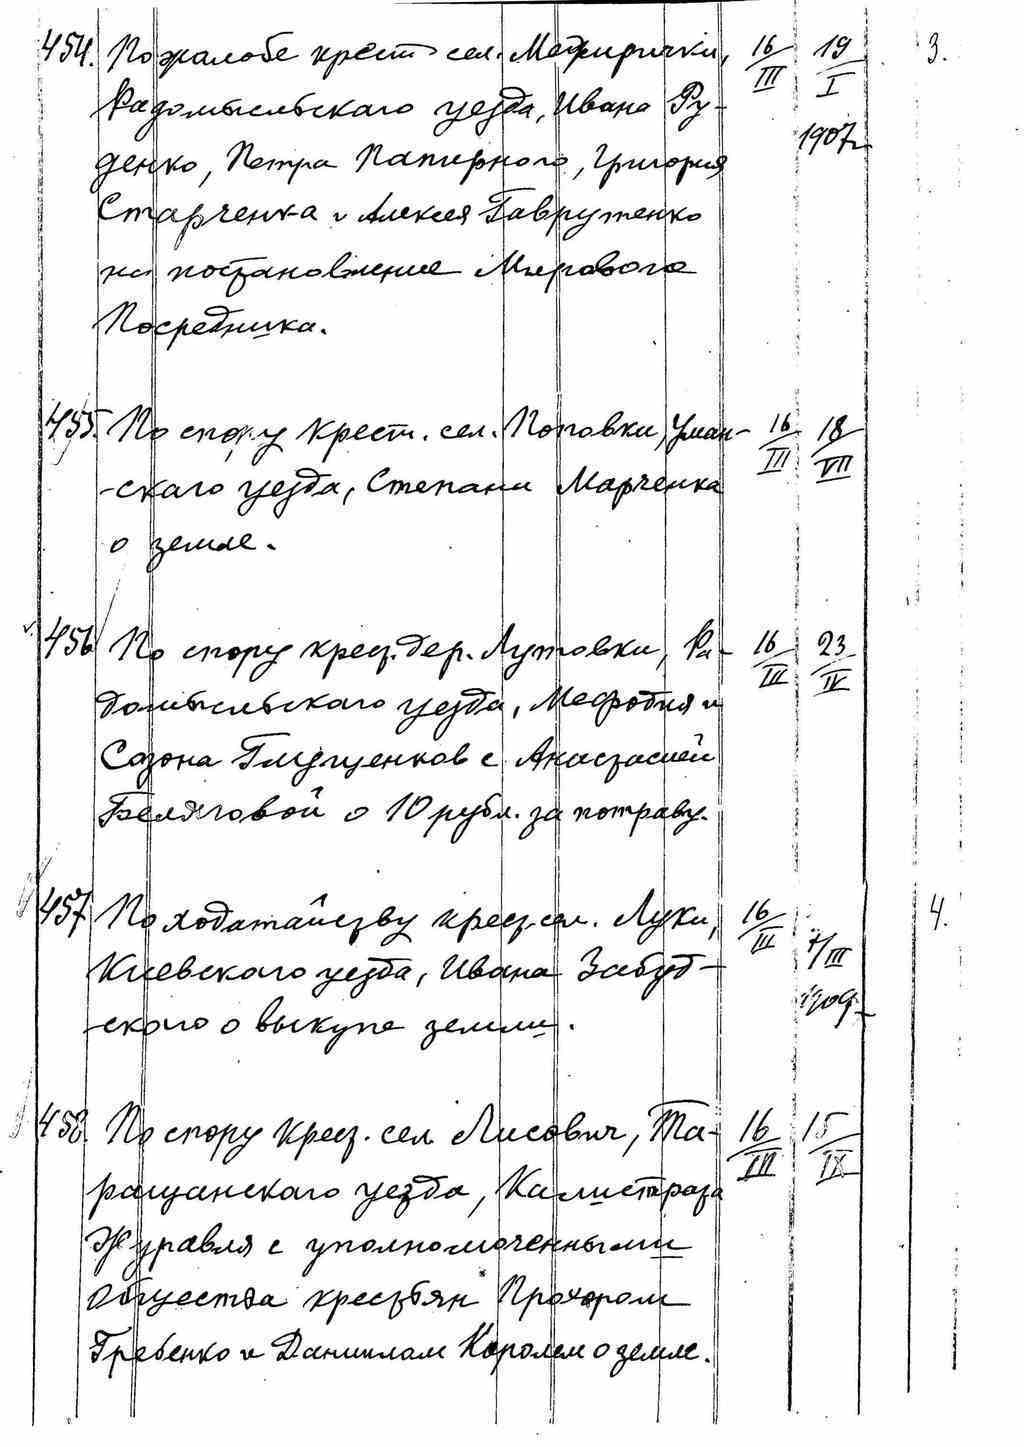 454. По жалобе крест. сел. Межирички, 16/III 19/I 3.
Радомысльскаго уезда, Ивана Ру-
1907г
денко, Петра Папирного, Григория
Старченка и Алексея Гаврутенко
на постановление Мирового
Посредника.
455. По спору крест. сел. Поповки, Уман- 16/III 18/VII
-скаго уезда, Степана Марченка
о земле.
456 По спору крест. дер. Лутовки, Ра- 16/III 23/IV
домысльскаго уезда, Мефодия и
Созона Глущенков с Анастасией
о 10 рубл. за потраву.
457 По ходатайству крест. сел. Луки, 16/III 7/III 4.
Киевскаго уезда, Ивана Забуд- 1909
-ского о выкупе земли.
458 По спору крест. сел. Лисович, Та- 16/III 15/IX
ращанскаго уезда, Калистрата
Журавля с уполномоченными
общества крестьян Прохором
Гребенко и Даниилом Королем о земле.